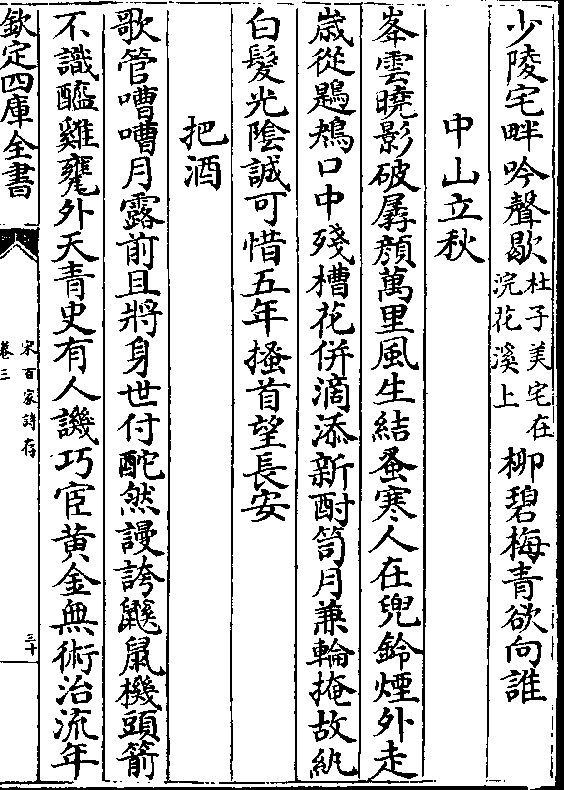 少陵宅畔吟聲歇杜子美宅在浣花溪上柳碧梅青欲向誰
中山立秋
峯雲曉影破孱顔萬里風生結蚤寒人在兜鈴煙外走
歳從鶗鴂口中殘槽花併滴添新酎笥月兼輪掩故紈
白髮光陰誠可惜五年搔首望長安
把酒
歌管嘈嘈月露前且將身世付酡然謾誇鼷鼠機頭箭
不識醯雞甕外天青史有人譏巧宦黄金無術治流年
欽定四庫全書
宋百家詩存
卷三
三十